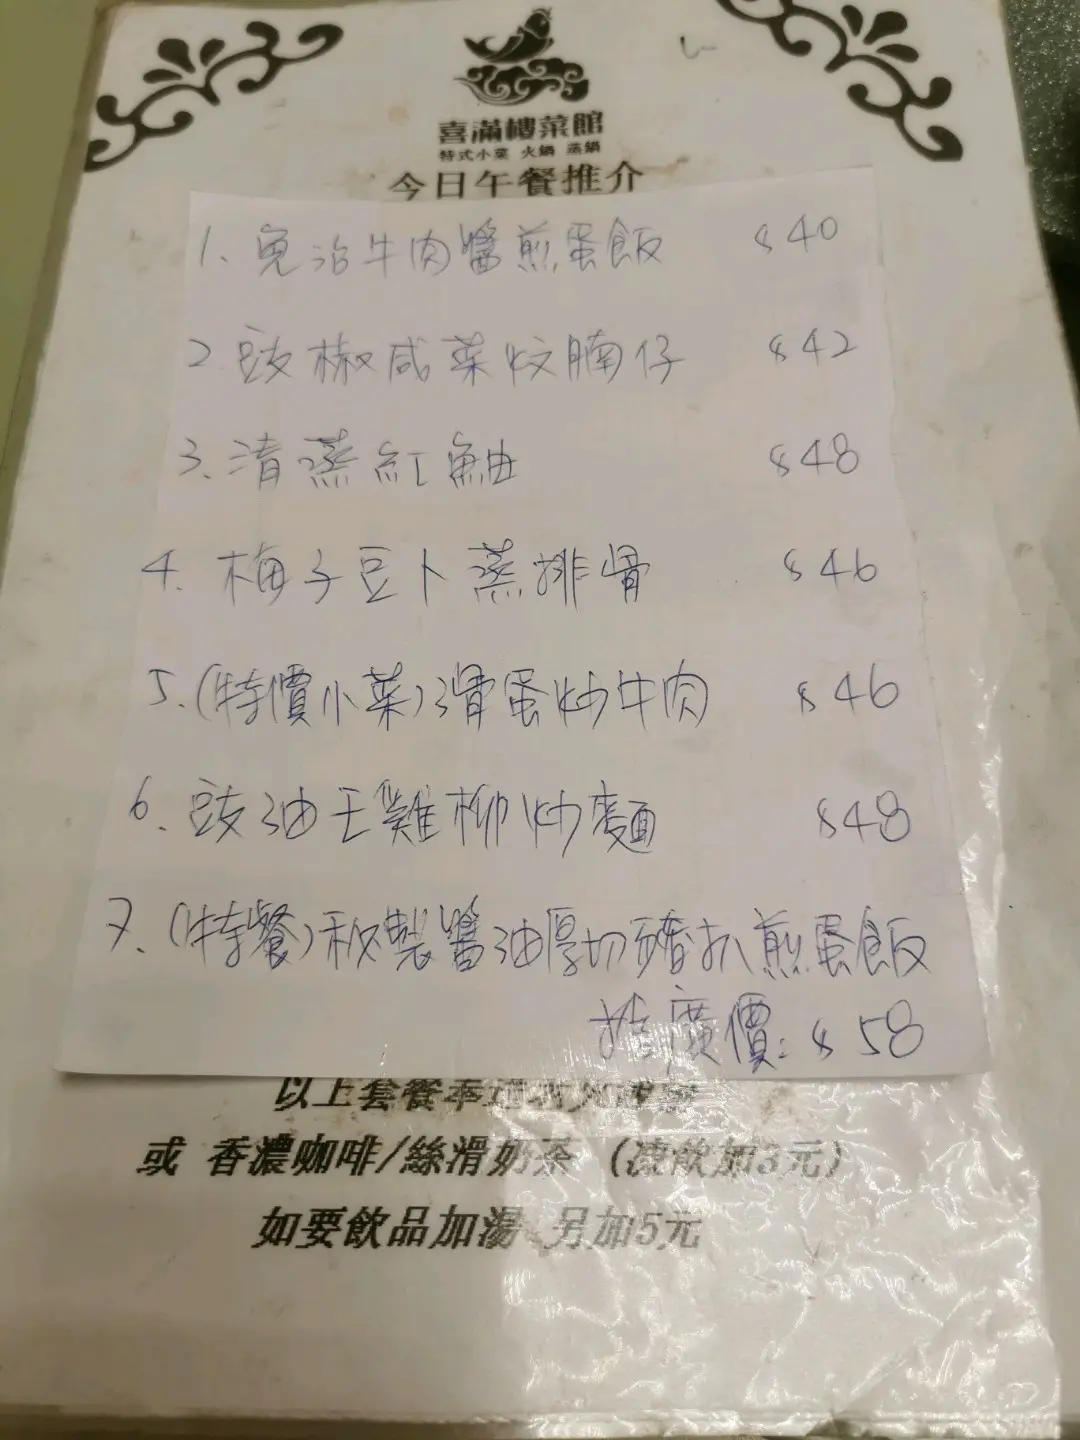 喜滿樓菜館
特式小菜 火鍋 蒸鍋
今日午餐推介
1. 免治牛肉醬煎蛋飯 $40
2 豉椒咸菜炆腩仔 $42
3. 清蒸紅鮋 $48
4. 梅子豆卜蒸排骨 $46
5.(特價小菜)滑蛋炒牛肉 $46
6. 豉油王雞柳炒麵 $48
7. (特餐)秘製醬油厚切豬扒煎蛋飯
推廣價: $58
以上套餐奉送
或 香濃咖啡/絲滑奶茶 (凍飲加3元)
如要飲品加湯 另加5元